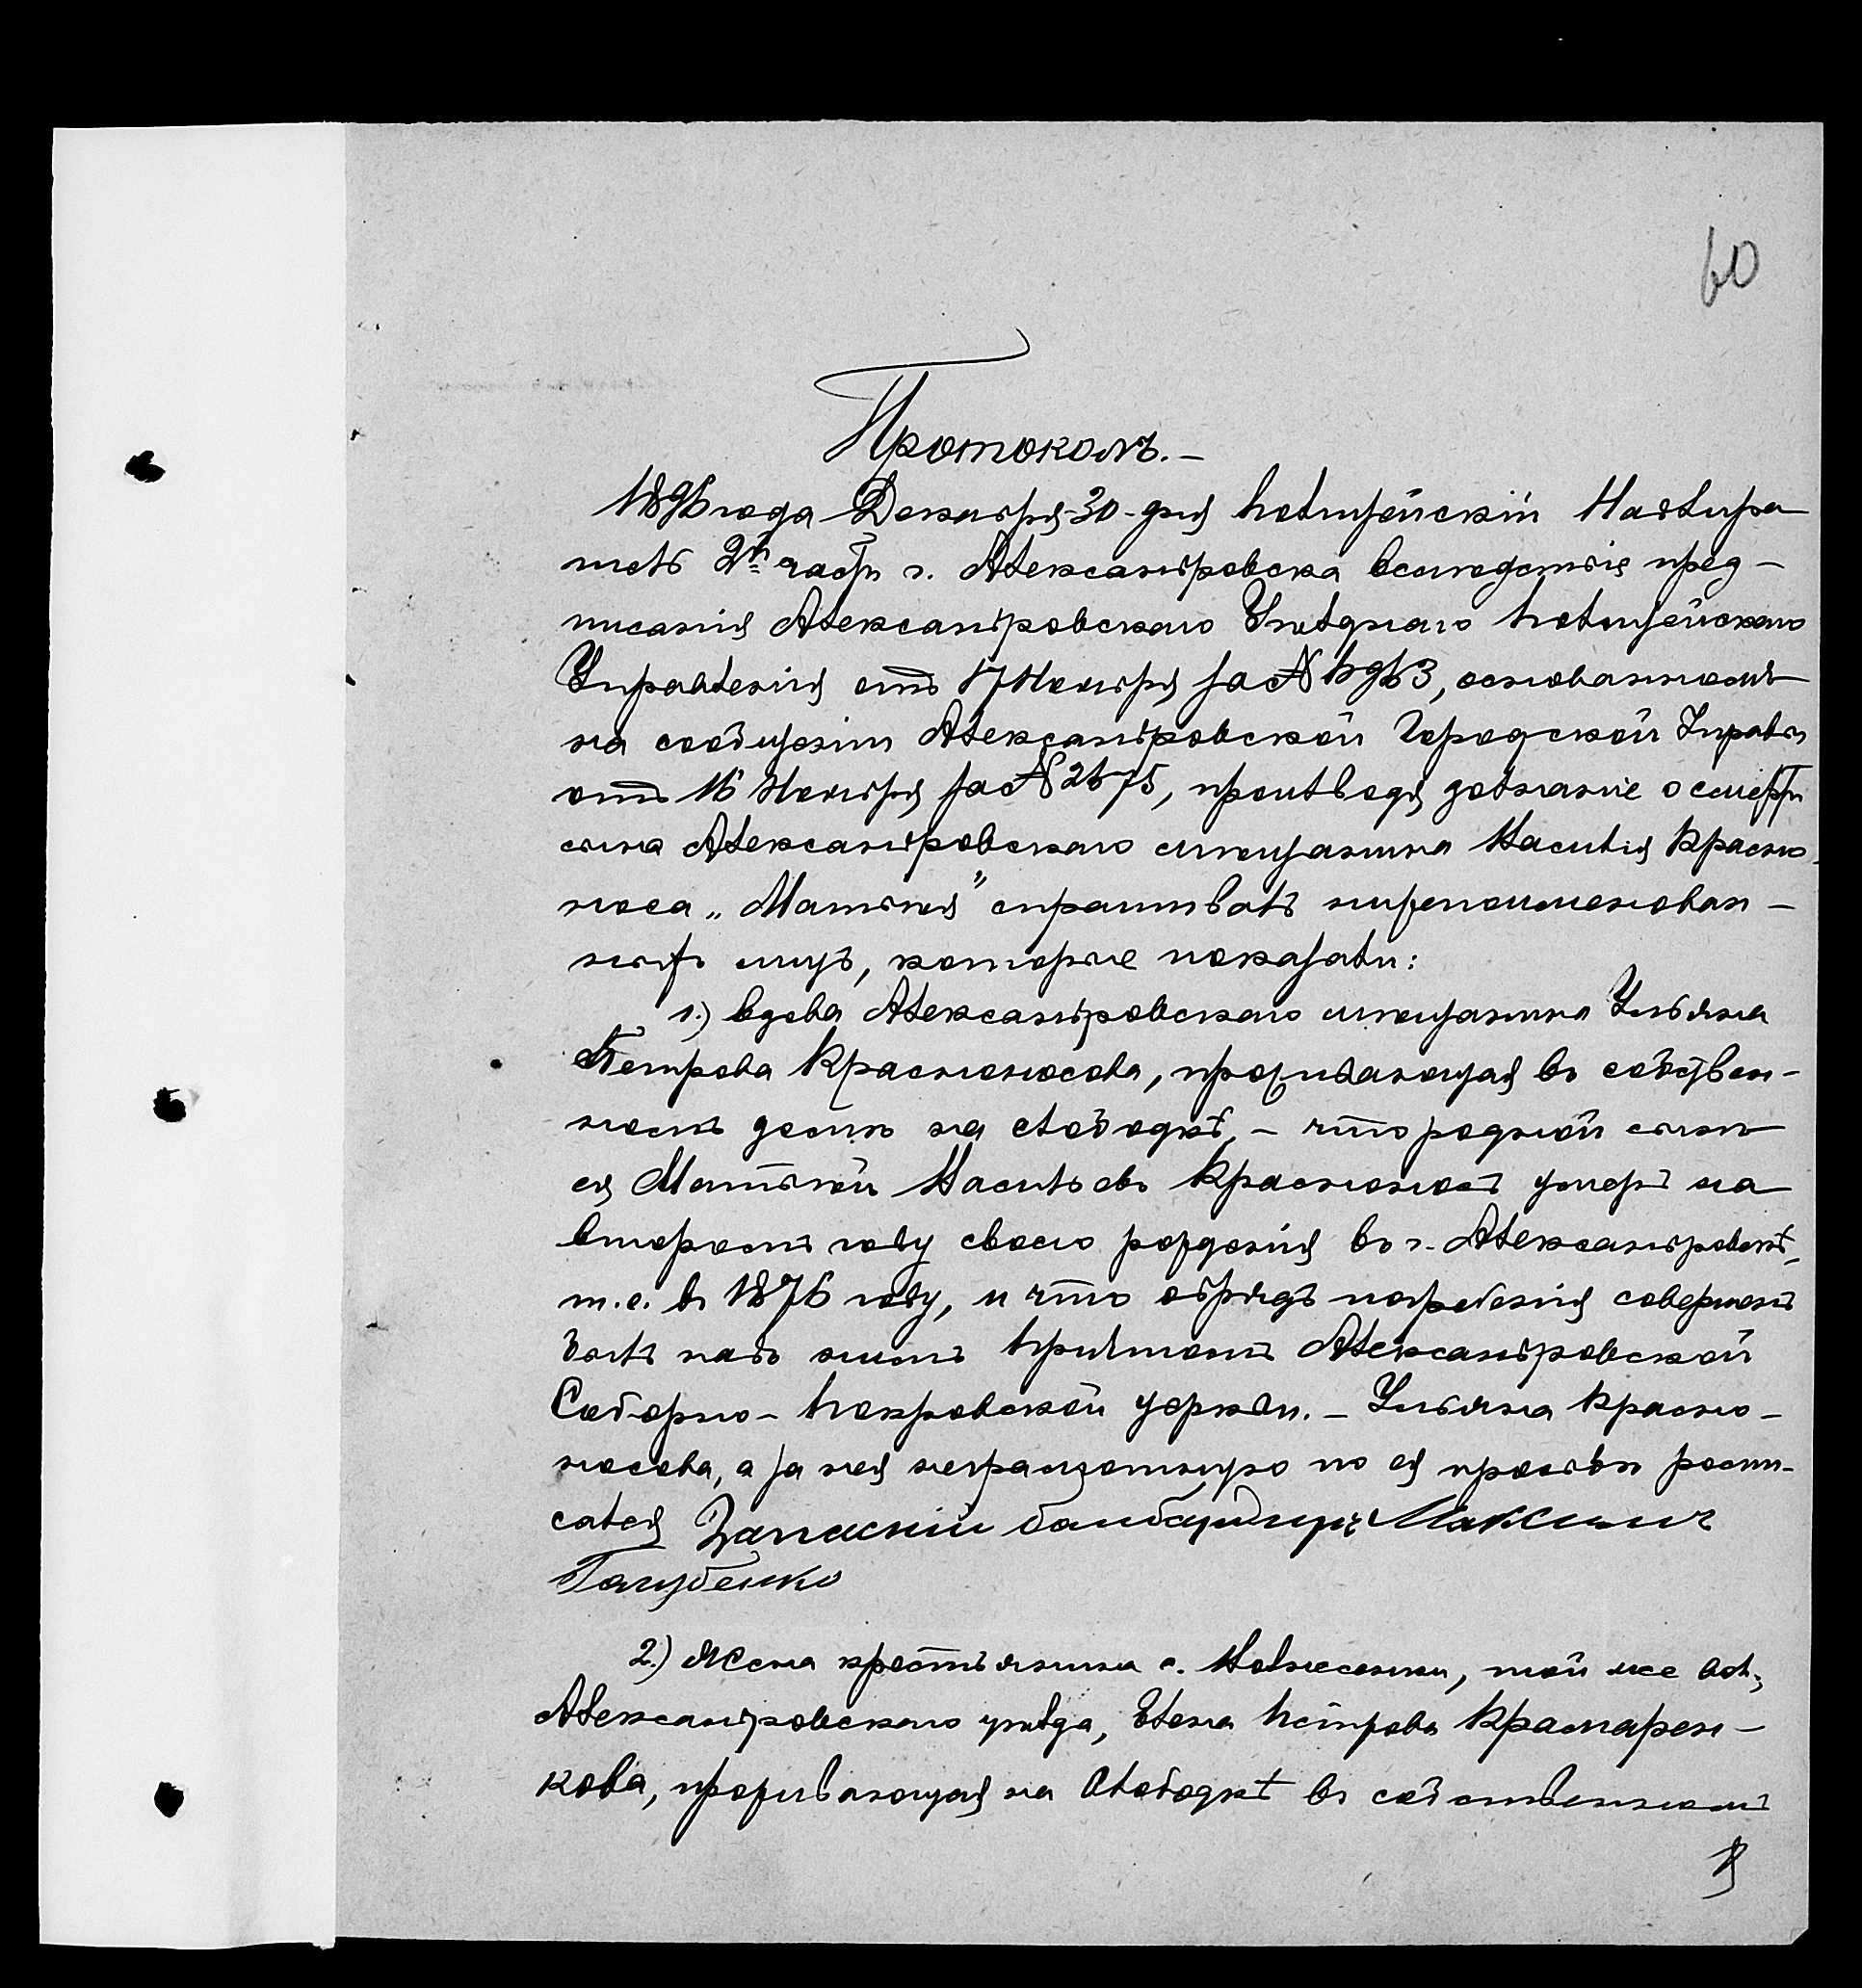 60
Протоколъ. —
1896 года Декабря 30 дня Полицейскій Надзира
тель 2й части г. Александровска вслѣдствіе пред-
писанія Александровскаго Уѣзднаго Полицейскаго
Управленія отъ 17 Ноября за №, основанномъ
на сообщеніи Александровской Городской Управы
отъ 16 Ноября за № 2675, производя дознаніе о смерти
сына Александровскаго мѣщанина Василія Красно-
носа „Матвѣя" спрашивалъ нижепоименован-
ныхъ лицъ, которые показали:
1.) Вдова Александровскаго мѣщанина Ульяна
Петрова Красноносова, проживающая въ собствен-
номъ домѣ на слободкѣ, — что родной сынъ
ея Матвѣй Васильевъ Красноносъ умеръ на
второмъ году своего рожденія въ г. Александровскѣ,
т.е. въ 1876 году, и что обрядъ погребенія совершенъ
былъ надъ нимъ причтомъ Александровской
Соборно-Покровской церкви. — Ульяна Красно-
носова, а за нея неграмотную по ея просьбѣ роспи-
сался Запасній бомбардиръ Максим
Голубенко
2.) Жена крестьянина с., той же вол.,
Александровскаго уѣзда, Елена Петрова Крамарен-
кова, проживающая на слободкѣ въ собственномъ